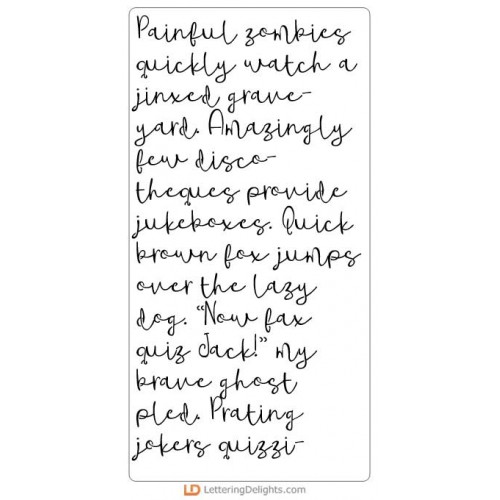 Painful zombies
quickly watch a
jinxed grave-
yard. Amazingly
few disco-
theques provide
jukeboxes. Quick
brown fox jumps
over the lazy
dog. “Now fax
quiz Jack!” my
brave ghost
pled. Prating
jokers quizzi-
LD LetteringDelights.com